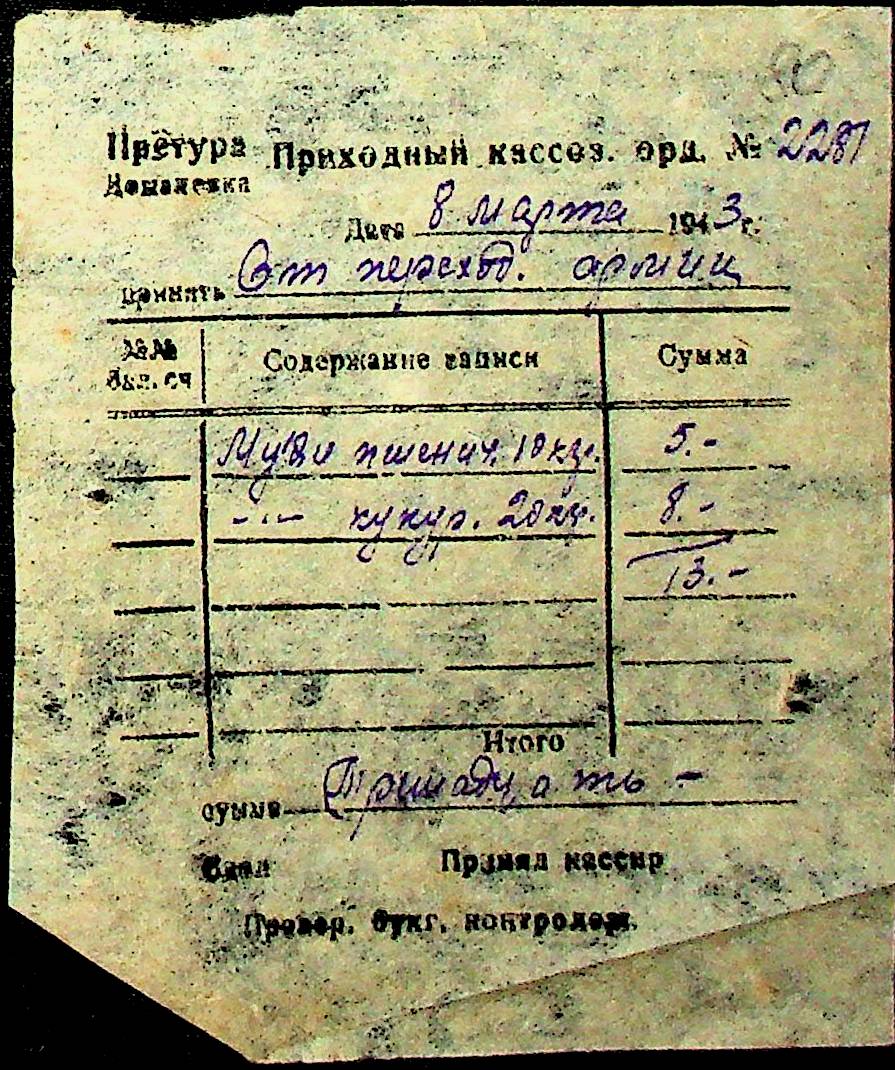 Претура Приходный кассов. орд. № 2281
Доманевка
Дата 8 марта 1943 г.
принять От переход. армии
№№ бал. сч Содержание записи Сумма
Муки пшенич. 10 кг. 5.-
-"- кукур. 20 кг. 8.-
13.-
Итого
сумма Тринадцать -
Сдал Принял кассир
Провер. бухг. контролер.